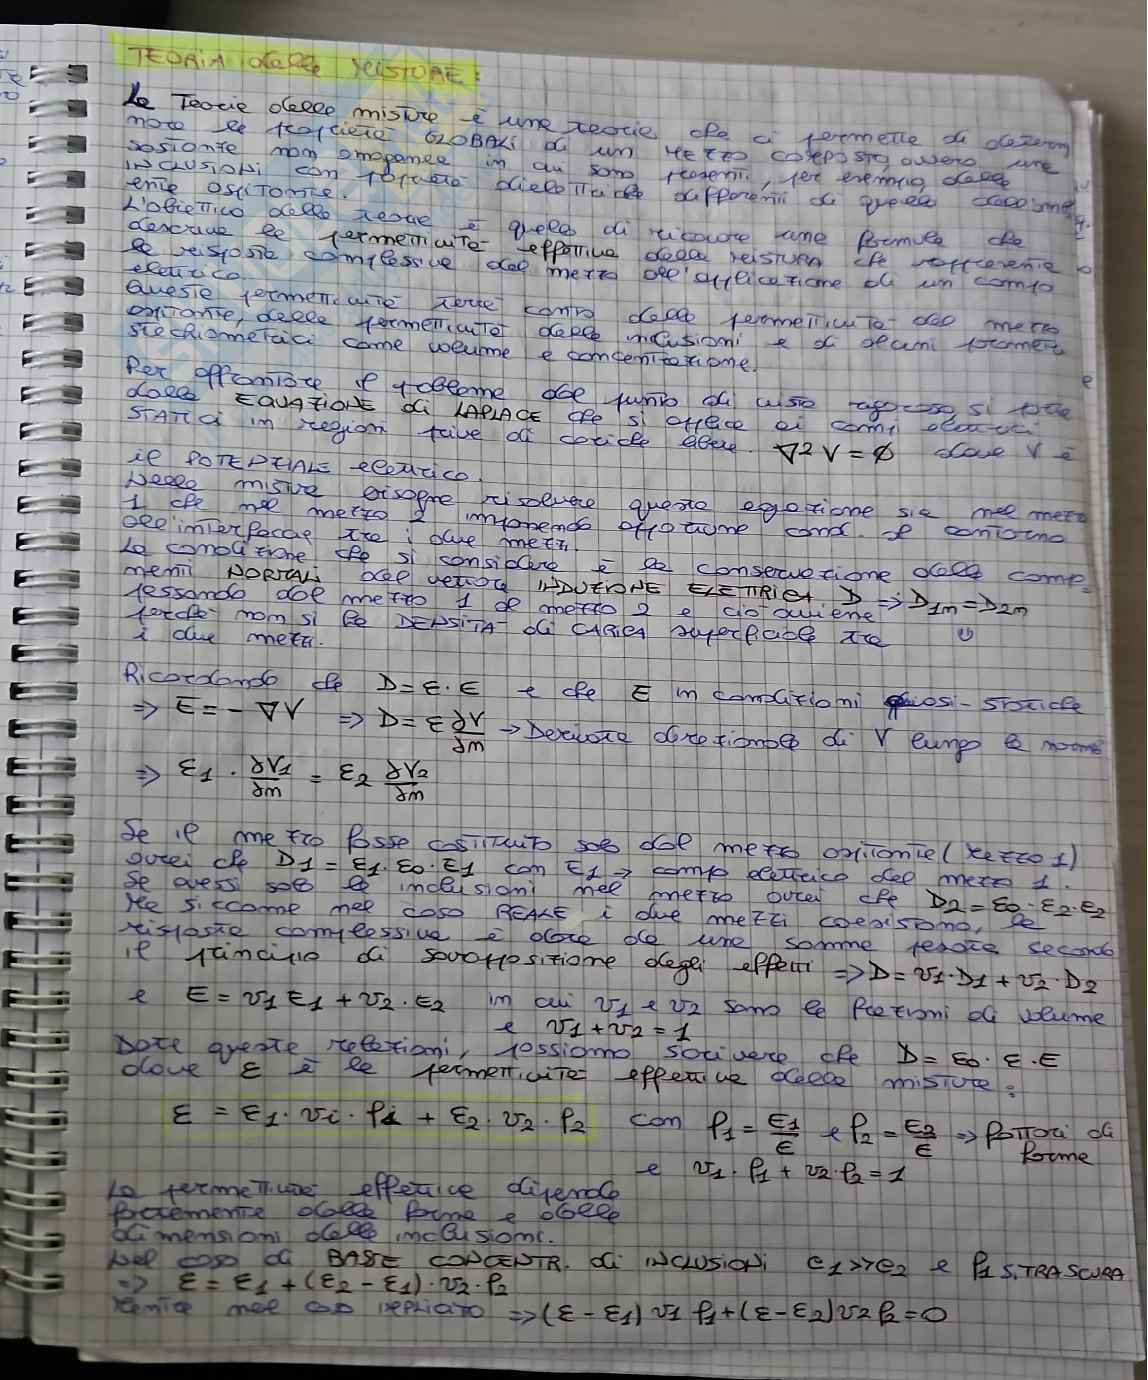 TEORIA delle MISTURE:
La Teoria delle misture è una teoria che ci permette di determi
nare le proprietà GLOBALI di un MEZZO COMPOSTO, ovvero una
sostanza non omogenea in cui sono presenti, per esempio, delle
INCLUSIONI con proprietà dielettriche differenti da quelle della
ente ospitante.
L'obiettivo della teoria è quello di ricavare una formula che
descrive la permettività effettiva della MISTURA che rappresenta
la risposta complessiva del mezzo all'applicazione di un campo
elettrico.
Questa permettività terrà conto della permettività del mezzo
ospitante, della permettività delle inclusioni e di alcuni parametri
stechiometrici come volume e concentrazione.
Per affrontare il problema dal punto di vista rigoroso, si parte
dalla EQUAZIONE di LAPLACE che si applica ai campi elettrici
STATICI in regioni prive di cariche libere. ∇2 V = ø dove V è
il POTENZIALE elettrico.
Nella mistura bisogna risolvere questa equazione sia nel mezzo
1 che nel mezzo 2 imponendo opportune cond. al contorno
all'interfaccia tra i due mezzi.
La condizione che si considera è la conservazione delle comp
nenti NORMALI del vettore INDUZIONE ELETTRICA D => D1n = D2n
passando dal mezzo 1 al mezzo 2 e ciò avviene
perché non si ha DENSITÀ di CARICA superficiale tra
i due mezzi.
Ricordando che D = ε · E e che E in condizioni quasi-statiche
=> E = - ∇V => D = ε ∂V/∂n -> Derivata direzionale di V lungo la norma
=> ε1 · ∂V1/∂n = ε2 ∂V2/∂n
Se il mezzo fosse costituito solo dal mezzo ospitante (Mezzo 1)
avrei che D1 = ε1 · ε0 · E1 con E1 -> campo elettrico del mezzo 1.
Se avessi solo le inclusioni nel mezzo avrei che D2 = ε0 · ε2 · E2
Ma siccome nel caso REALE i due mezzi coesistono, la
risposta complessiva è data da una somma pesata secondo
il principio di sovrapposizione degli effetti => D = v1 · D1 + v2 · D2
e E = v1 E1 + v2 · E2 in cui v1 e v2 sono le frazioni di volume
e v1 + v2 = 1
Date queste relazioni, possiamo scrivere che D = ε0 · ε · E
dove ε è la permettività effettiva della misture:
ε = ε1 · vi · f1 + ε2 · v2 · f2 con f1 = E1/E e f2 = E2/E => fattori di
forma
e v1 · f1 + v2 · f2 = 1
La permettività effettiva dipende
fortemente dalla forma e dalle
dimensioni delle inclusioni.
Nel caso di BASSE CONCENTR. di INCLUSIONI e1 >> e2 e f1 SI TRASCURA
=> ε = ε1 + (ε2 - ε1) · v2 · f2
Mentre nel caso => (ε - ε1) v1 f1 + (ε - ε2) v2 f2 = 0